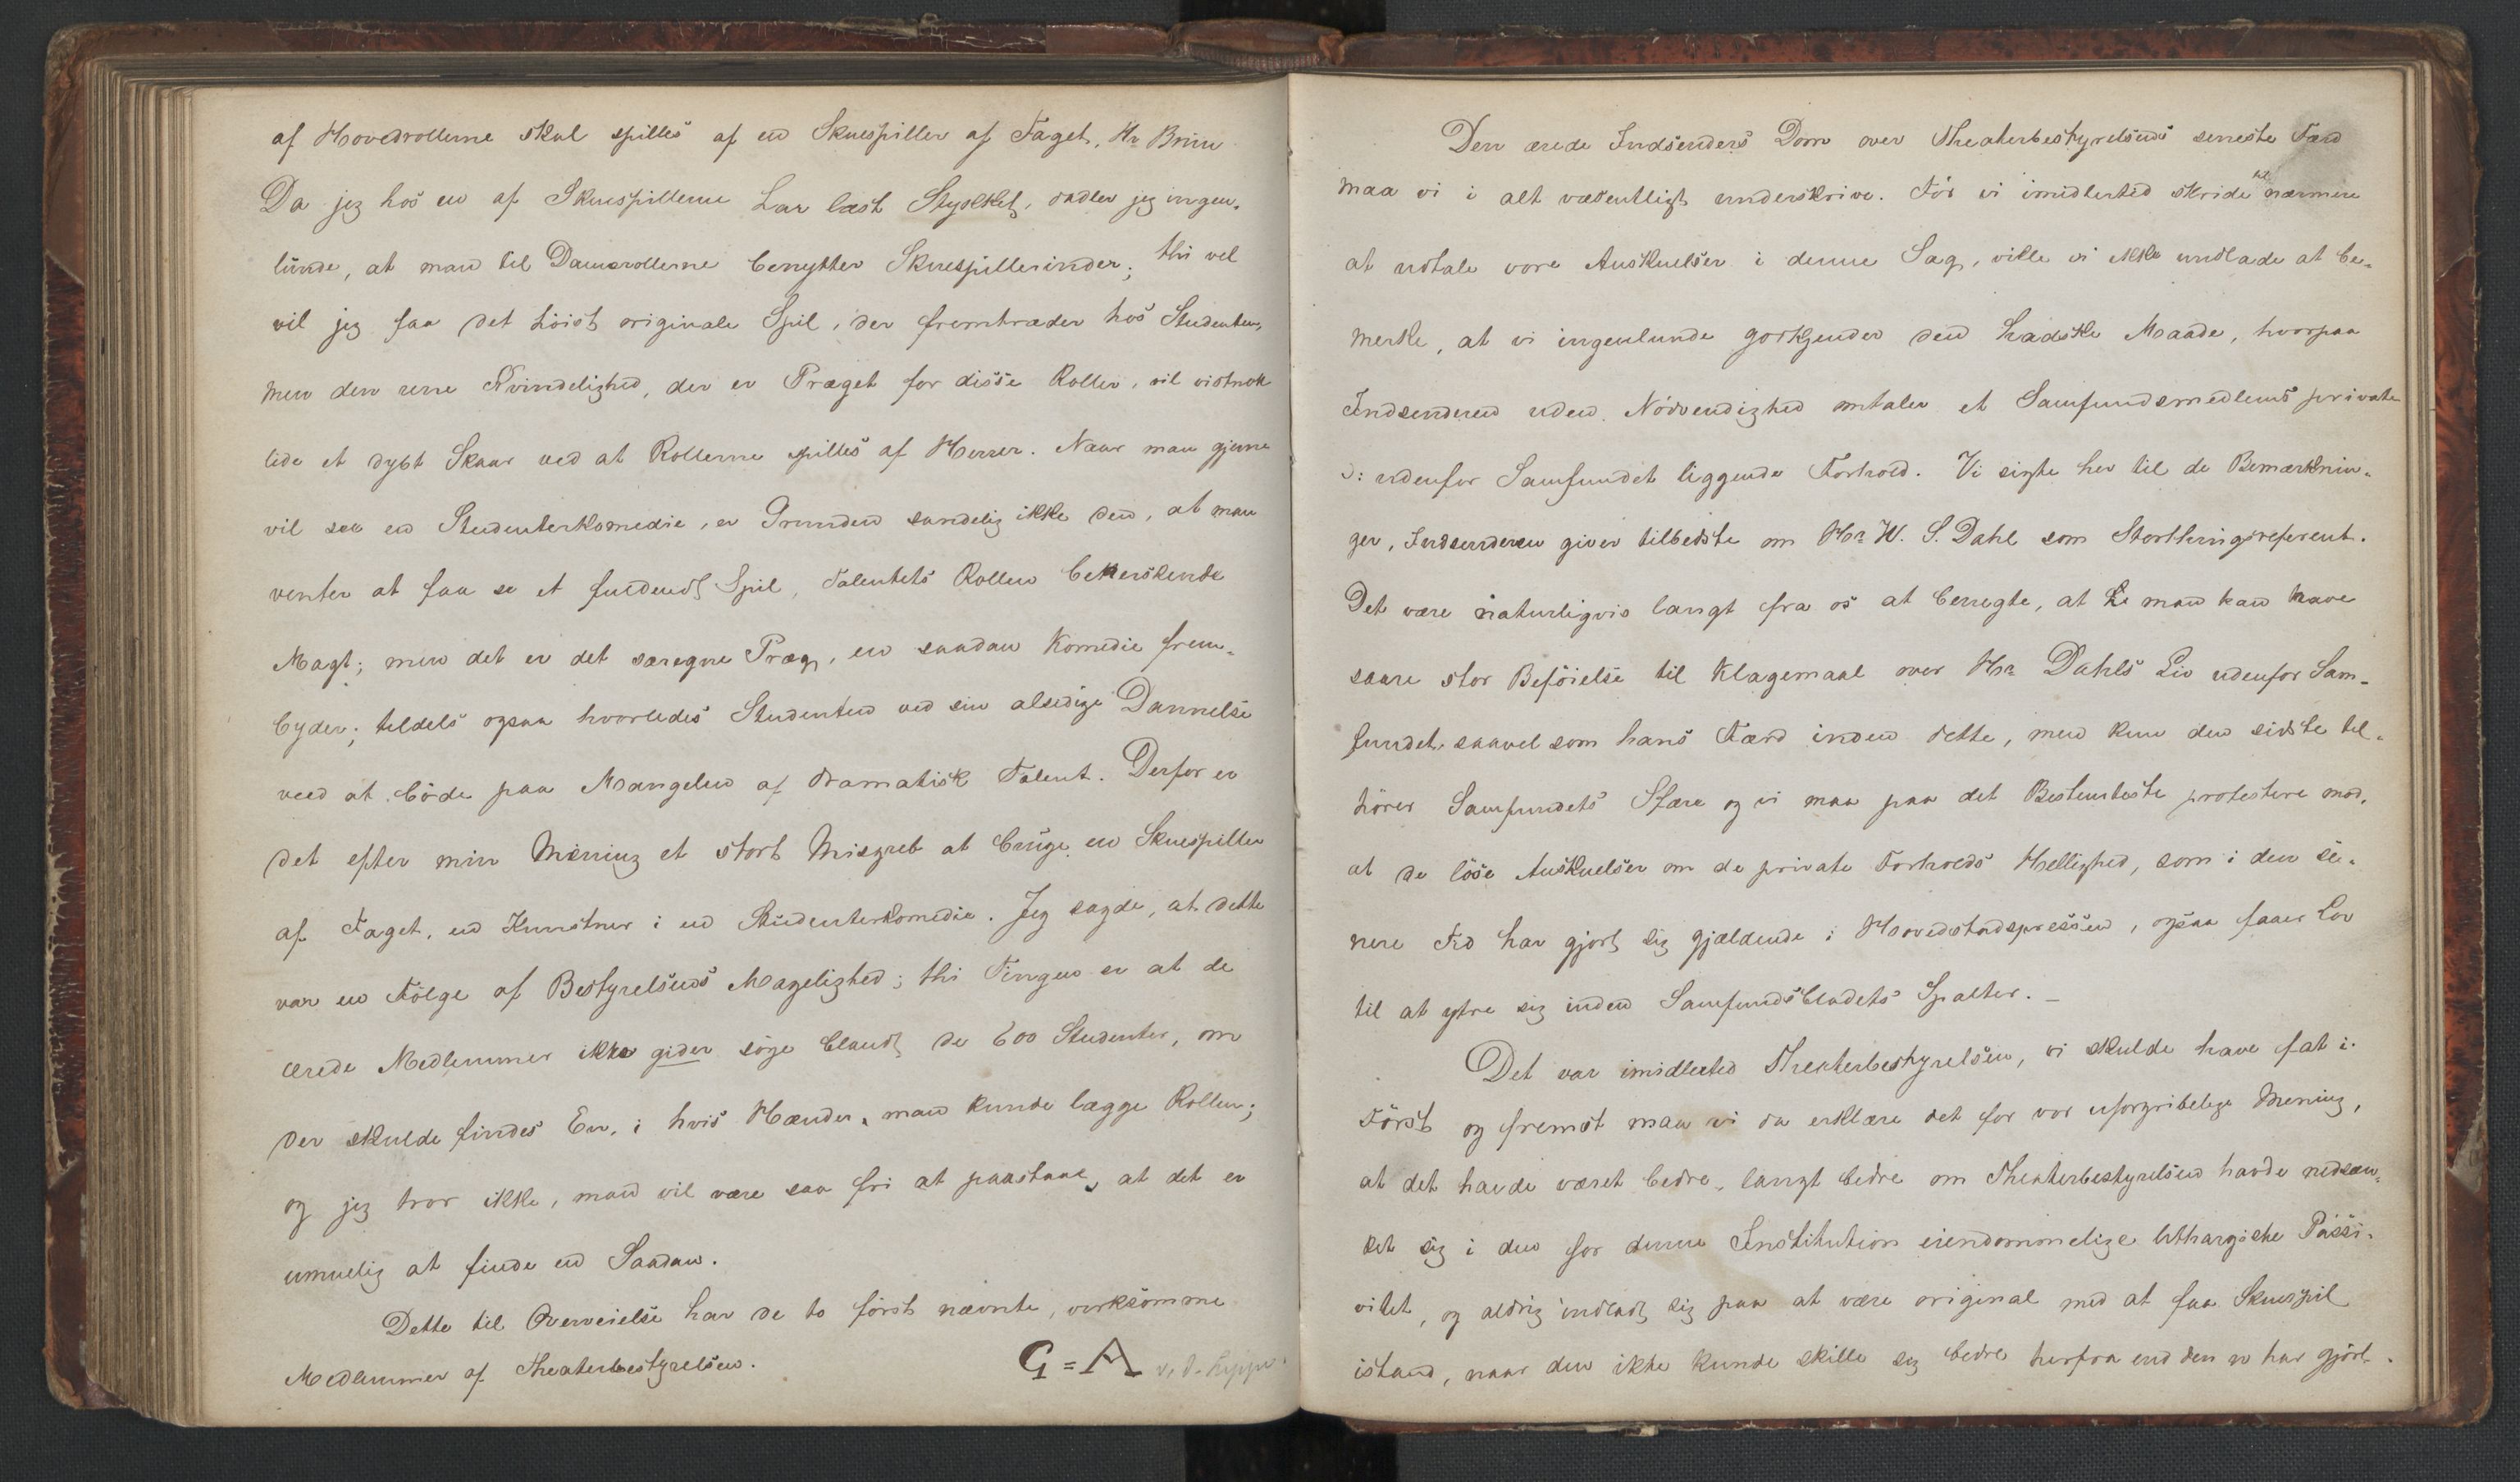 af Hovedrollerne skal spilles af en Skuespiller af Faget, Hr Bruun
Da jeg hos en af Skuespillerne har læst Stykket, dadler jeg ingen-
lunde, at man til Damerollerne benytter Skuespillerinder; thi vel
vil jeg faa det höist originale Spil, der fremtræder hos Studenten,
men den rene Kvindelighed, der er Præget for disse Roller, vil vistnok
lide et dybt Skaar ved at Rollerne spilles af Herrer. Naar man gjerne
vil see en Studenterkomedie, er Grunden sandelig ikke den, at man
venter at faa se et fuldendt Spil, Talentets Rollen beherskende
Magt; men det er det særegne Præg, en saadan Komedie frem-
byder; tildels ogsaa hvorledes Studenten ved sin alsidige Dannelse
veed at böde paa Mangelen af dramatisk Talent. Derfor er
det efter min Mening et stort Misgreb at bruge en Skuespiller
af Faget, en Kunstner i en Studenterkomedie. Jeg sagde, at dette
var en Fölge af Bestyrelsens Magelighed; thi Tingen er at de
ærede Medlemmer ikke gider söge blandt de 600 Studenter, om
der skulde findes En, i hvis Hænder, man kunde lægge Rollen;
og jeg tror ikke, man vil være saa fri at paastaae, at det er
umuelig at finde en Saadan.
Dette til Overveielse har de to först nævnte, virksomme
Medlemmer af Theaterbestyrelsen.
G = A v. d. Lippe.
Den ærede Indsenders Dom over Theaterbestyrelsens seneste Færd
maa vi i alt væsentligt underskrive.För vi imidlertid skride til nærmere
at udtale vore Anskuelser i denne Sag, ville vi ikke undlade at be-
merke, at vi ingenlunde godkjender den hadske Maade, hvorpaa
Indsenderen uden Nödvendighed omtaler et Samfundsmedlems private
ɔ: udenfor Samfundet liggende Forhold. Vi sigte her til de Bemærknin-
ger, Indsenderen giver tilbedste om Hr W. S. Dahl som Storthingsreferent.
Det være naturligvis langt fra os at benegte, at Le man kan have
saare stor Beföielse til Klagemaal over Hr Dahls Liv udenfor Sam-
fundet, saavel som hans Færd inden dette, men kun den sidste til-
hörer Samfundets Sfære og vi maa paa det Bestemteste protestere mod,
at de löse Anskuelser om de private Forholds Hellighed, som i den se-
nere Tid har gjort sig gjældende i Hovedstadspressen, ogsaa faaer Lov
til at ytre sig inden Samfundsbladets Spalter. –
Det var imidlertid Theaterbestyrelsen, vi skulde have fat i.
Först og fremst maa vi da erklære det for vor uforgribelige Mening,
at det havde været bedre, langt bedre om Theaterbestyrelsen havde nedsæn-
ket sig i den for denne Institution eiendommelige lethargiske Passi-
vitet, og aldrig indladt sig paa at være original med at faa Skuespil
istand, naar den ikke kunde skille sig bedre herfra end den nu har gjört.